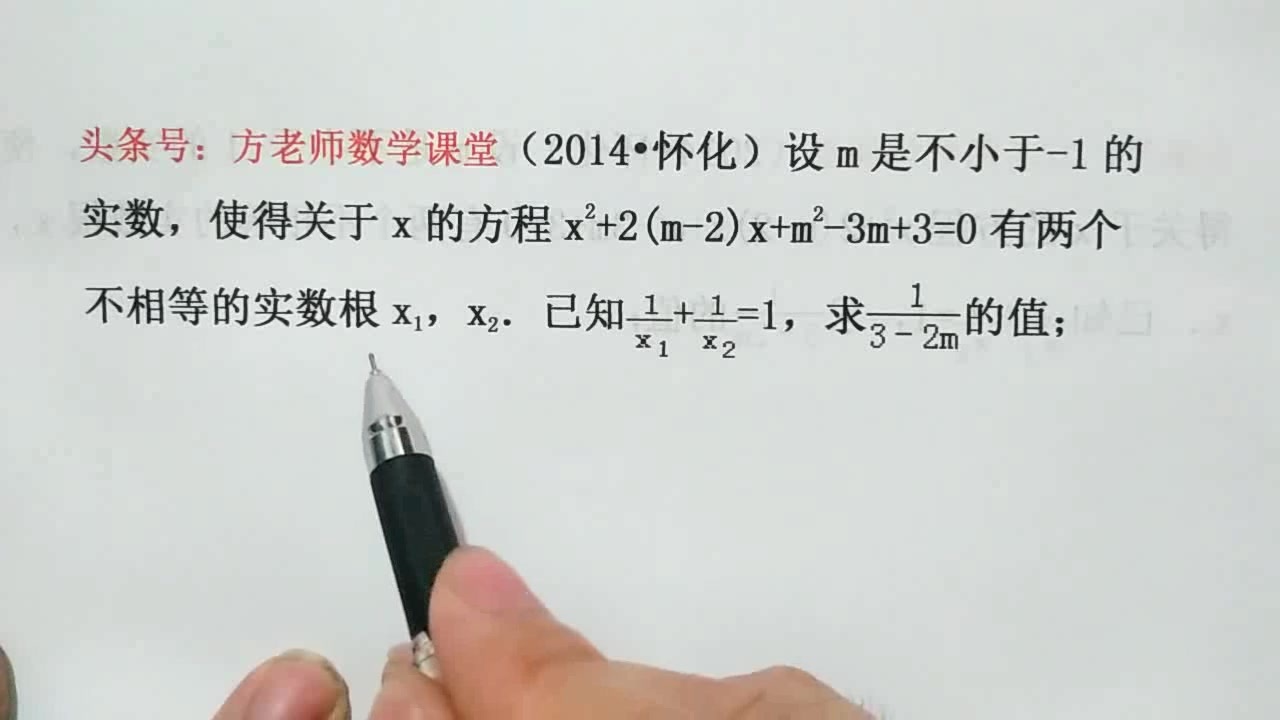 头条号：方老师数学课堂（2014•怀化）设 m 是不小于-1 的
实数，使得关于 x 的方程 x²+2(m-2)x+m²-3m+3=0 有两个
不相等的实数根 x₁，x₂．已知 1/x₁+1/x₂=1，求 1/(3-2m) 的值；